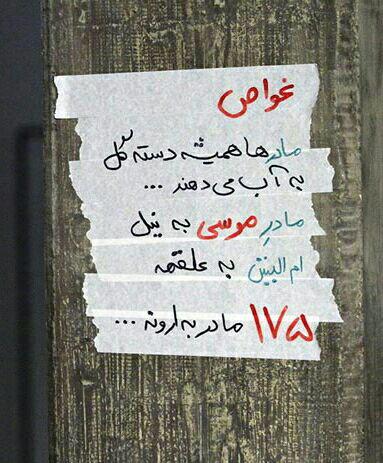 غواص
مادرها همیشه دسته گل
به آب می دهند ...
مادرِ موسی به نیل
ام البنین به علقمه
۱۷۵ مادر به اروند ...